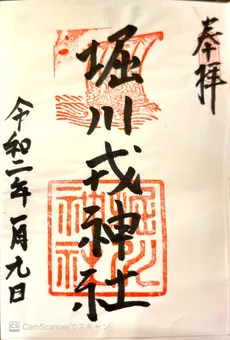 奉拝
堀川戎神社
堀川戎
神社
令和二年一月九日
CS CamScannerでスキャン